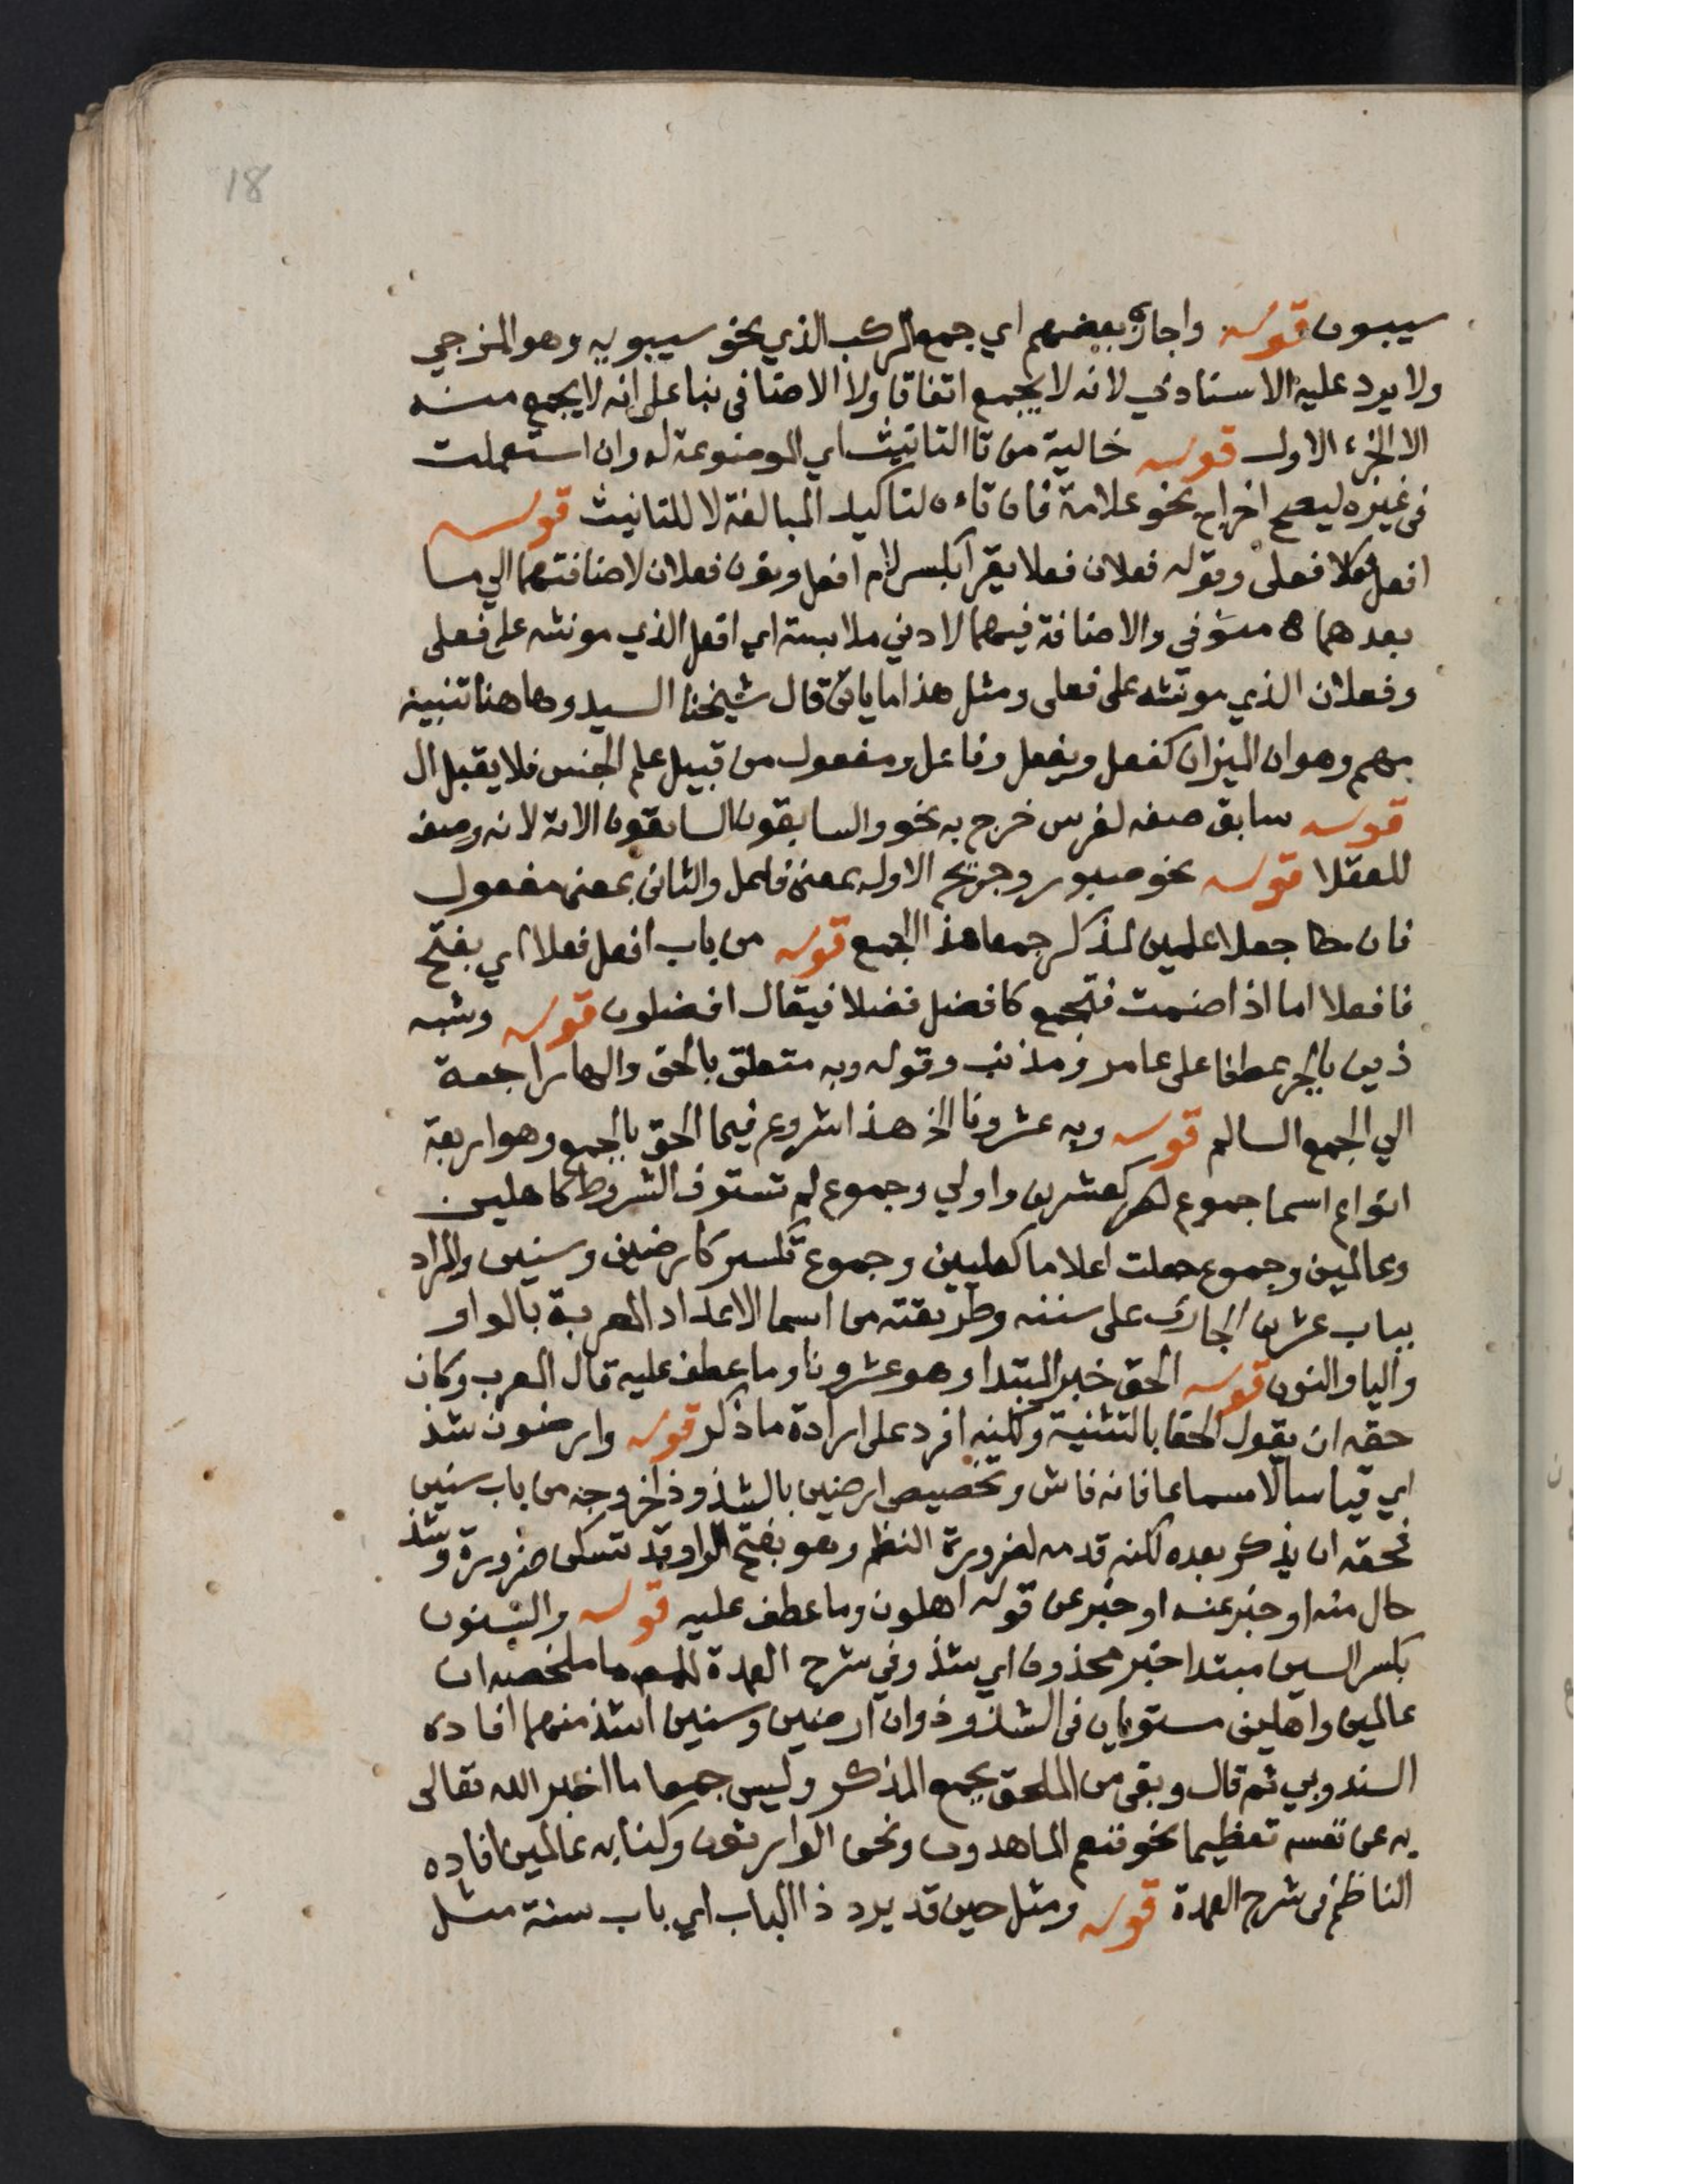 18
سيبون قوله واجازه بعضهم اي جمع المركب الذي نحو سيبويه وهو المزجي
ولا يرد عليه الاسنادي لانه لا يجمع اتفاقا ولا الاضافي بنا على انه لا يجمع منه
الا الجزء الاول قوله خالية من تا التانيث اي الموضوعة له وان استعملت
في غيره ليصح اخراج نحو علامة فان تاءه لتاكيد المبالغة لا للتانيث قوله
افعل فعلا فعلى وقوله فعلان فعلا يقرا بكسر لام افعل ونون فعلان لاضافتهما الى ما
بعدهما والاضافة فيهما لادني ملابسة اي افعل الذي مونثه على فعلى
وفعلان الذي مونثه على فعلى ومثل هذا ما ياتى قال شيخنا السيد وهاهنا تنبيه
مهم وهو ان الميزان كفعل ويفعل وفاعل ومفعول من قبيل علم الجنس فلا يقبل ال
قوله سابق صفه لفرس خرج به نحو والسابقون السابقون الاية لانه وصف
للعقلا قوله نحو صبور وجريح الاول بمعنى فاعل والثانى بمعنى مفعول
فان جعلا علمين لمذكر جمعا هذا الجمع قوله من باب افعل فعلا اي بفتح
فا فعلا اما اذا ضمت فتجمع كافضل فضلا فيقال افضلون قوله وشبه
ذين بالجر عطفا على عامر ومذنب وقوله وبه متعلق بالحق والها راجعة
الي الجمع السالم قوله وبه عشرونا الخ هذا شروع فيما الحق بالجمع وهو اربعة
انواع اسما جموع كعشرين واولي وجموع لم تستوف الشروط كاهلين
وعالمين وجموع جعلت اعلاما كعليين وجموع تكسير كارضين وسنين والمراد
بباب عشرين الجارى على سننه وطريقته من اسما الاعداد المعربة بالواو
واليا والنون قوله الحق خبر المبتدا وهو عشرونا وما عطف عليه قال المعرب وكان
حقه ان يقول الحقا بالتثنية ولكنه افرد على ارادة ما ذكر قوله وارضون شذ
اي قياسا لا سماعا فانه فاش وتخصيص ارضين بالشذوذ اخروجه من باب سنين
فحقه ان يذكر بعده لكنه قدمه لضرورة النظم وهو بفتح الرا وقد تسكن ضرورة وشذ
حال منه او خبر عنه او خبر عن قوله اهلون وما عطف عليه قوله والسنون
بكسر السين مبتدا خبر محذوف اي شذ وفي شرح العمدة للمصـ ما ملخصه ان
عالمين واهلين مستويان في الشذوذ وان ارضين وسنين اشذ منهما افاده
السندوبي ثم قال وبقى من الملحق بجمع المذكر وليس جمعا ما اخبر الله تعالى
به عن نفسه تعظيما نحو فنعم الماهدون ونحن الوارثون وكنا به عالمين افاده
الناظم فى شرح العمدة قوله ومثل حين قد يرد ذا الباب اي باب سنة مثل